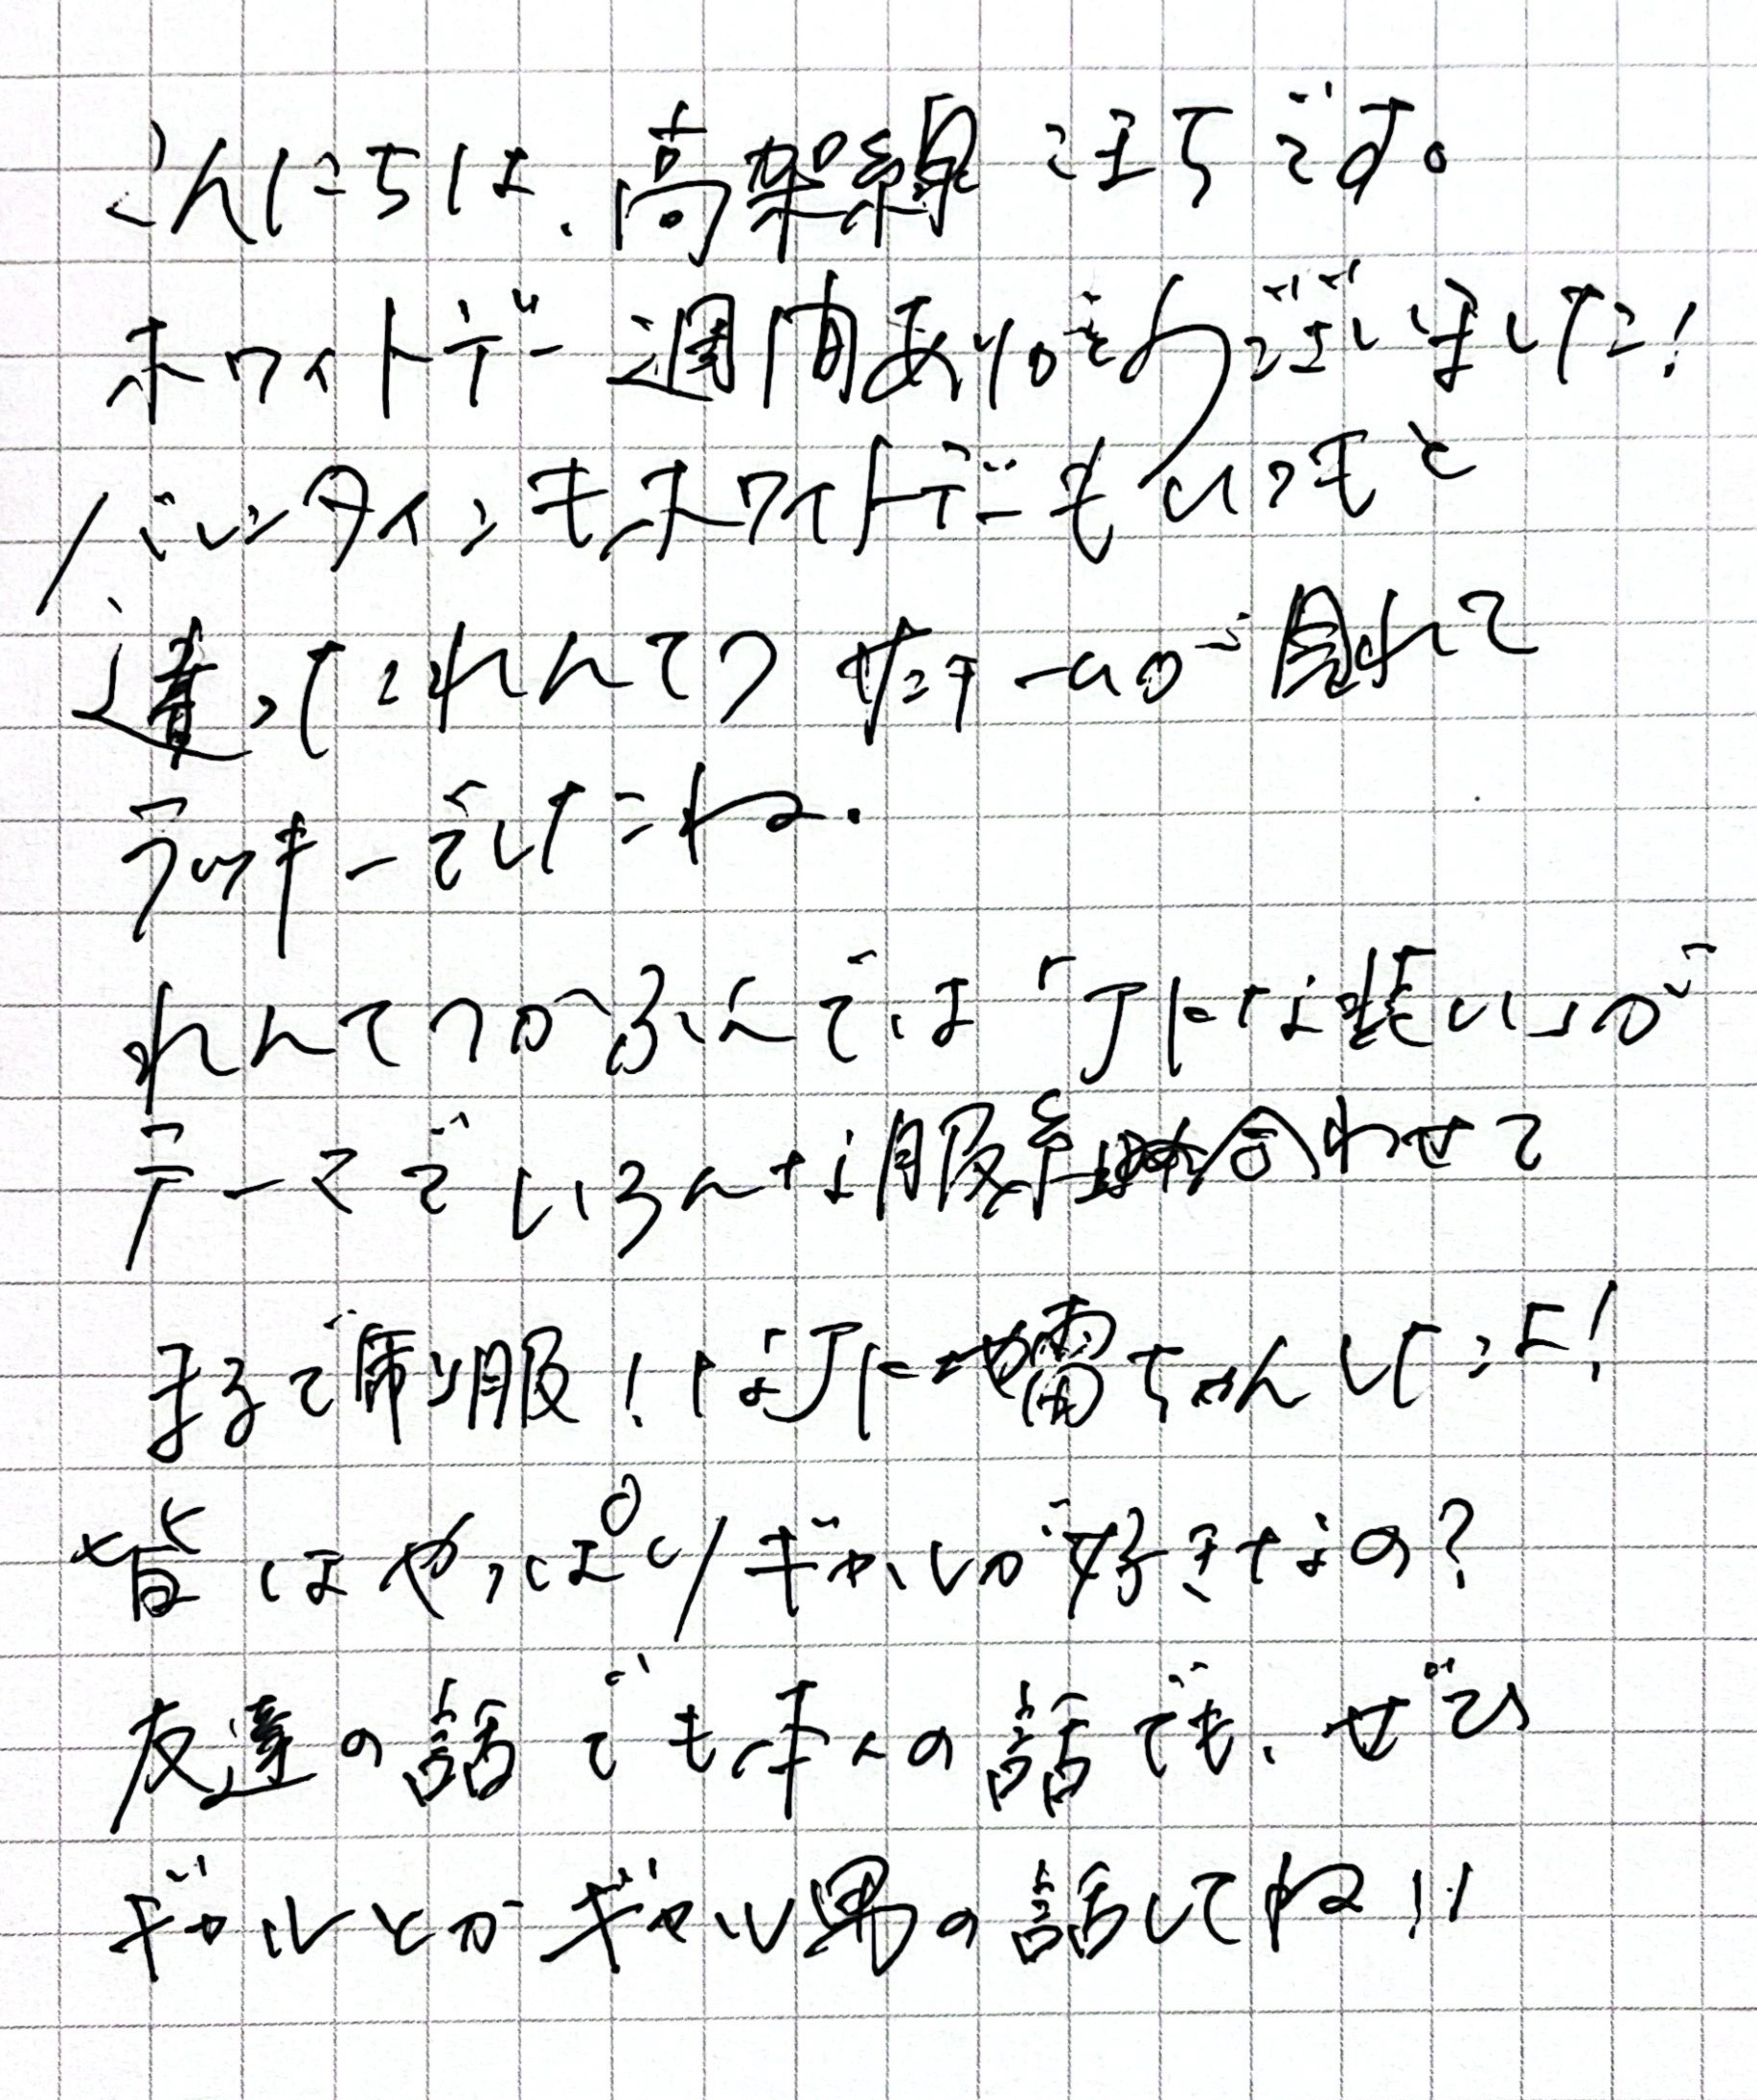 こんにちは、高架線こまちです。
ホワイトデー週間ありがとうございました!
バレンタインもホワイトデーもいつもと
違ったれんてつ 見れて
ラッキーでしたね.
れんてつがふぇでは「了にな装い」が
テーマでいろんな服組み合わせて
まるで制服!な 地雷ちゃんしたよ!
皆はやっぱりギャルが好きなの?
友達の話でも本人の話でも、ぜひ
ギャルとかギャル男の話してね!!